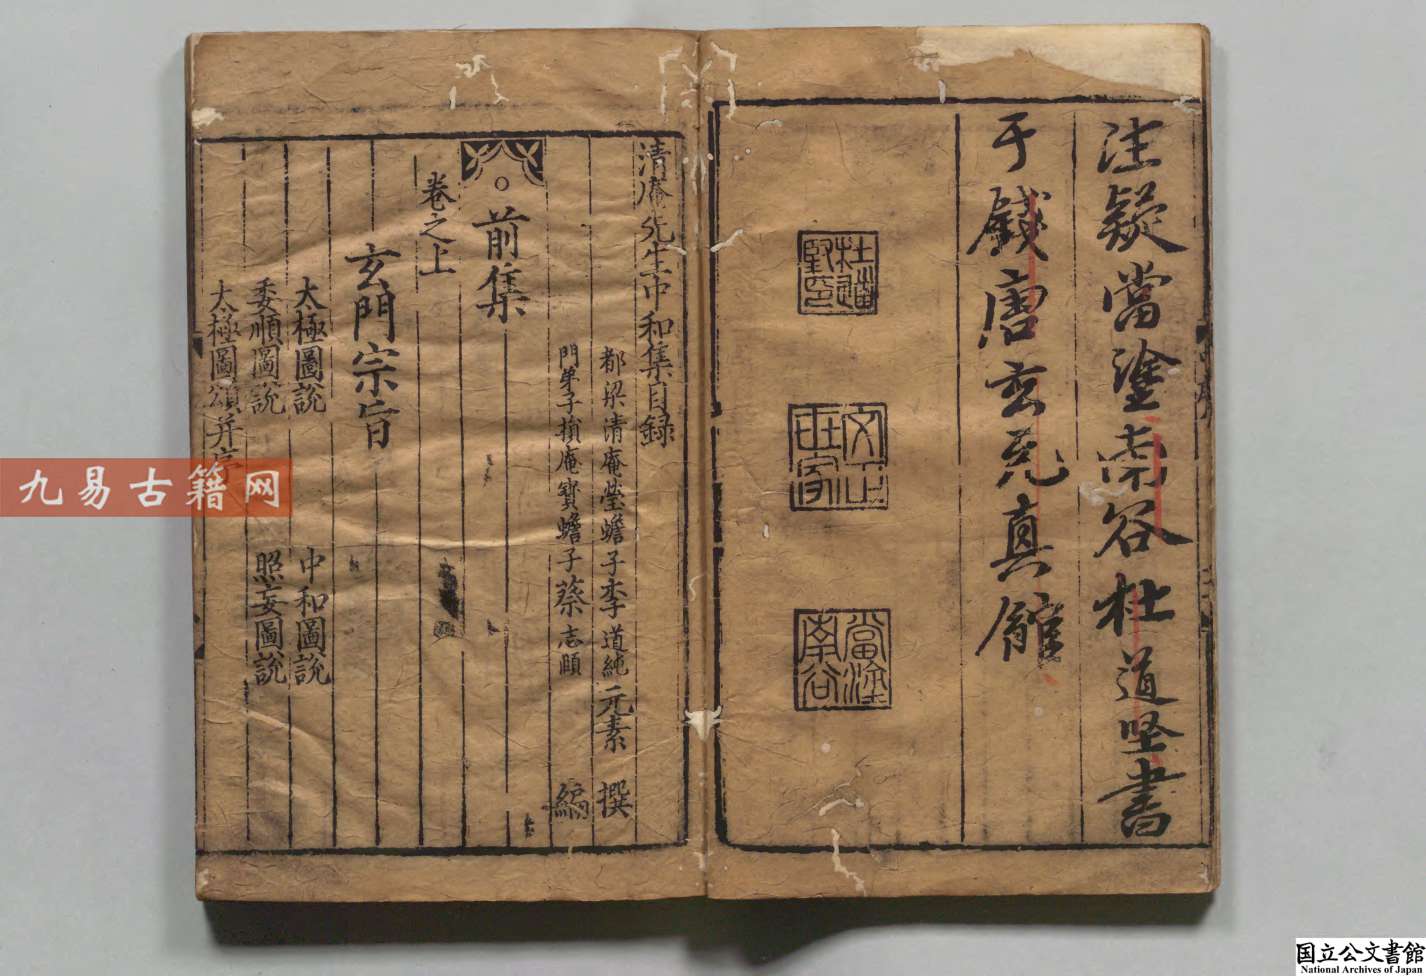 注疑當塗南谷杜道堅書
于錢唐玄元真館
杜道堅印
文正世家
當塗南谷
清庵先生中和集目録
都梁清庵瑩蟾子李道純元素 撰
門弟子損庵寶蟾子蔡志頤 編
前集
卷之上
玄門宗旨
太極圖說 中和圖說
委順圖說 照妄圖說
太極圖頌并序
九易古籍网
国立公文書館
National Archives of Japan